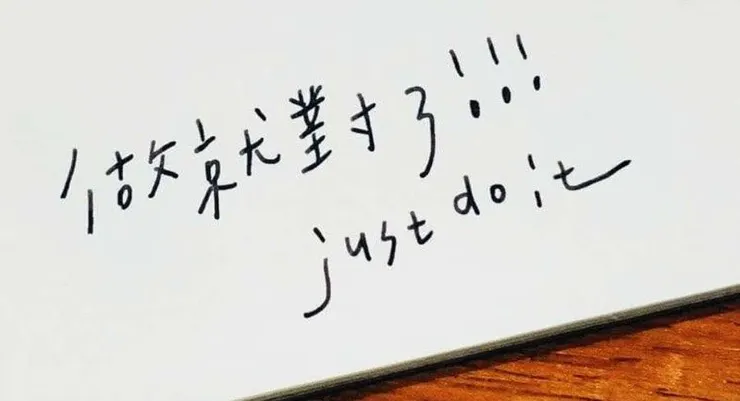 做就對了!!!
just do it